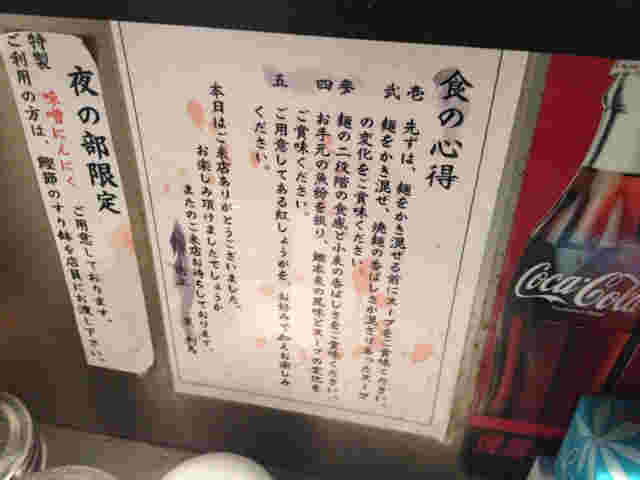 食の心得
壱 先ずは、麺をかき混ぜる前にスープをご賞味ください。
弐 麺をかき混ぜ、焼麺の香ばしさが混ざりあったスープ
の変化をご賞味ください。
参 麺の二段階の食感と小麦の香ばしさをご賞味ください。
四 お手元の魚粉を振り、鰹本来の風味とスープの変化を
ご賞味ください。
五 ご用意してある紅しょうがを、お好みで加えお楽しみ
ください。
本日はご来店ありがとうございました。
お楽しみ頂けましたでしょうか
またのご来店お待ちしております。
夜の部限定
特製 味噌にんにく ご用意しております。
ご利用の方は、鰹節のすり鉢を店員にお渡し下さい。
Coca-Cola